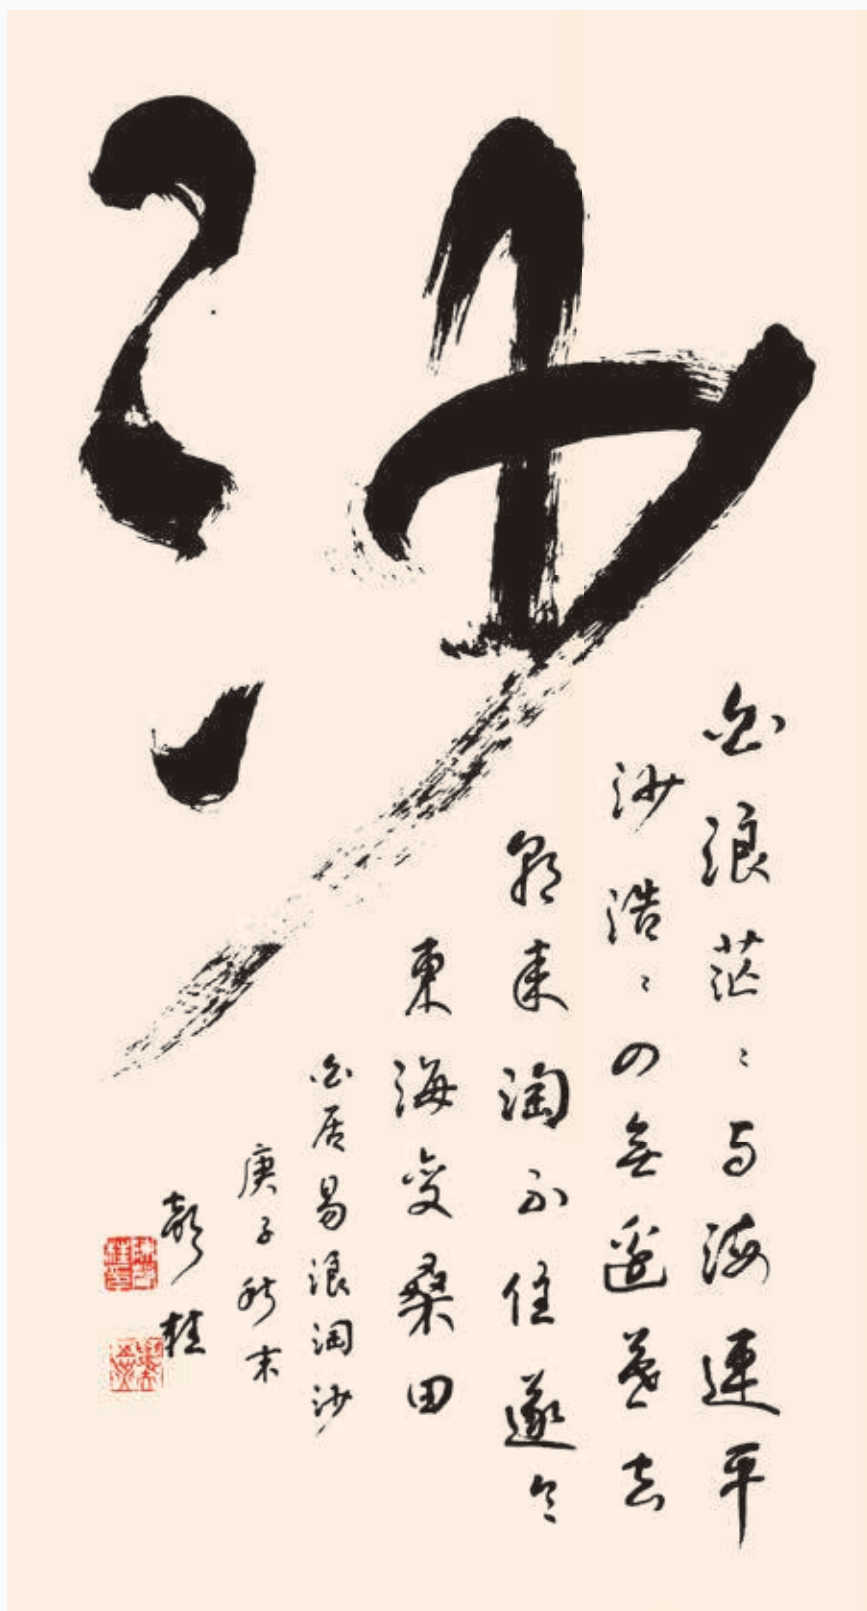 沙
白浪茫〻与海連平
沙浩〻四無邊暮去
朝来淘不住遂令
東海変桑田
白居易浪淘沙
庚子秋末
彭桂